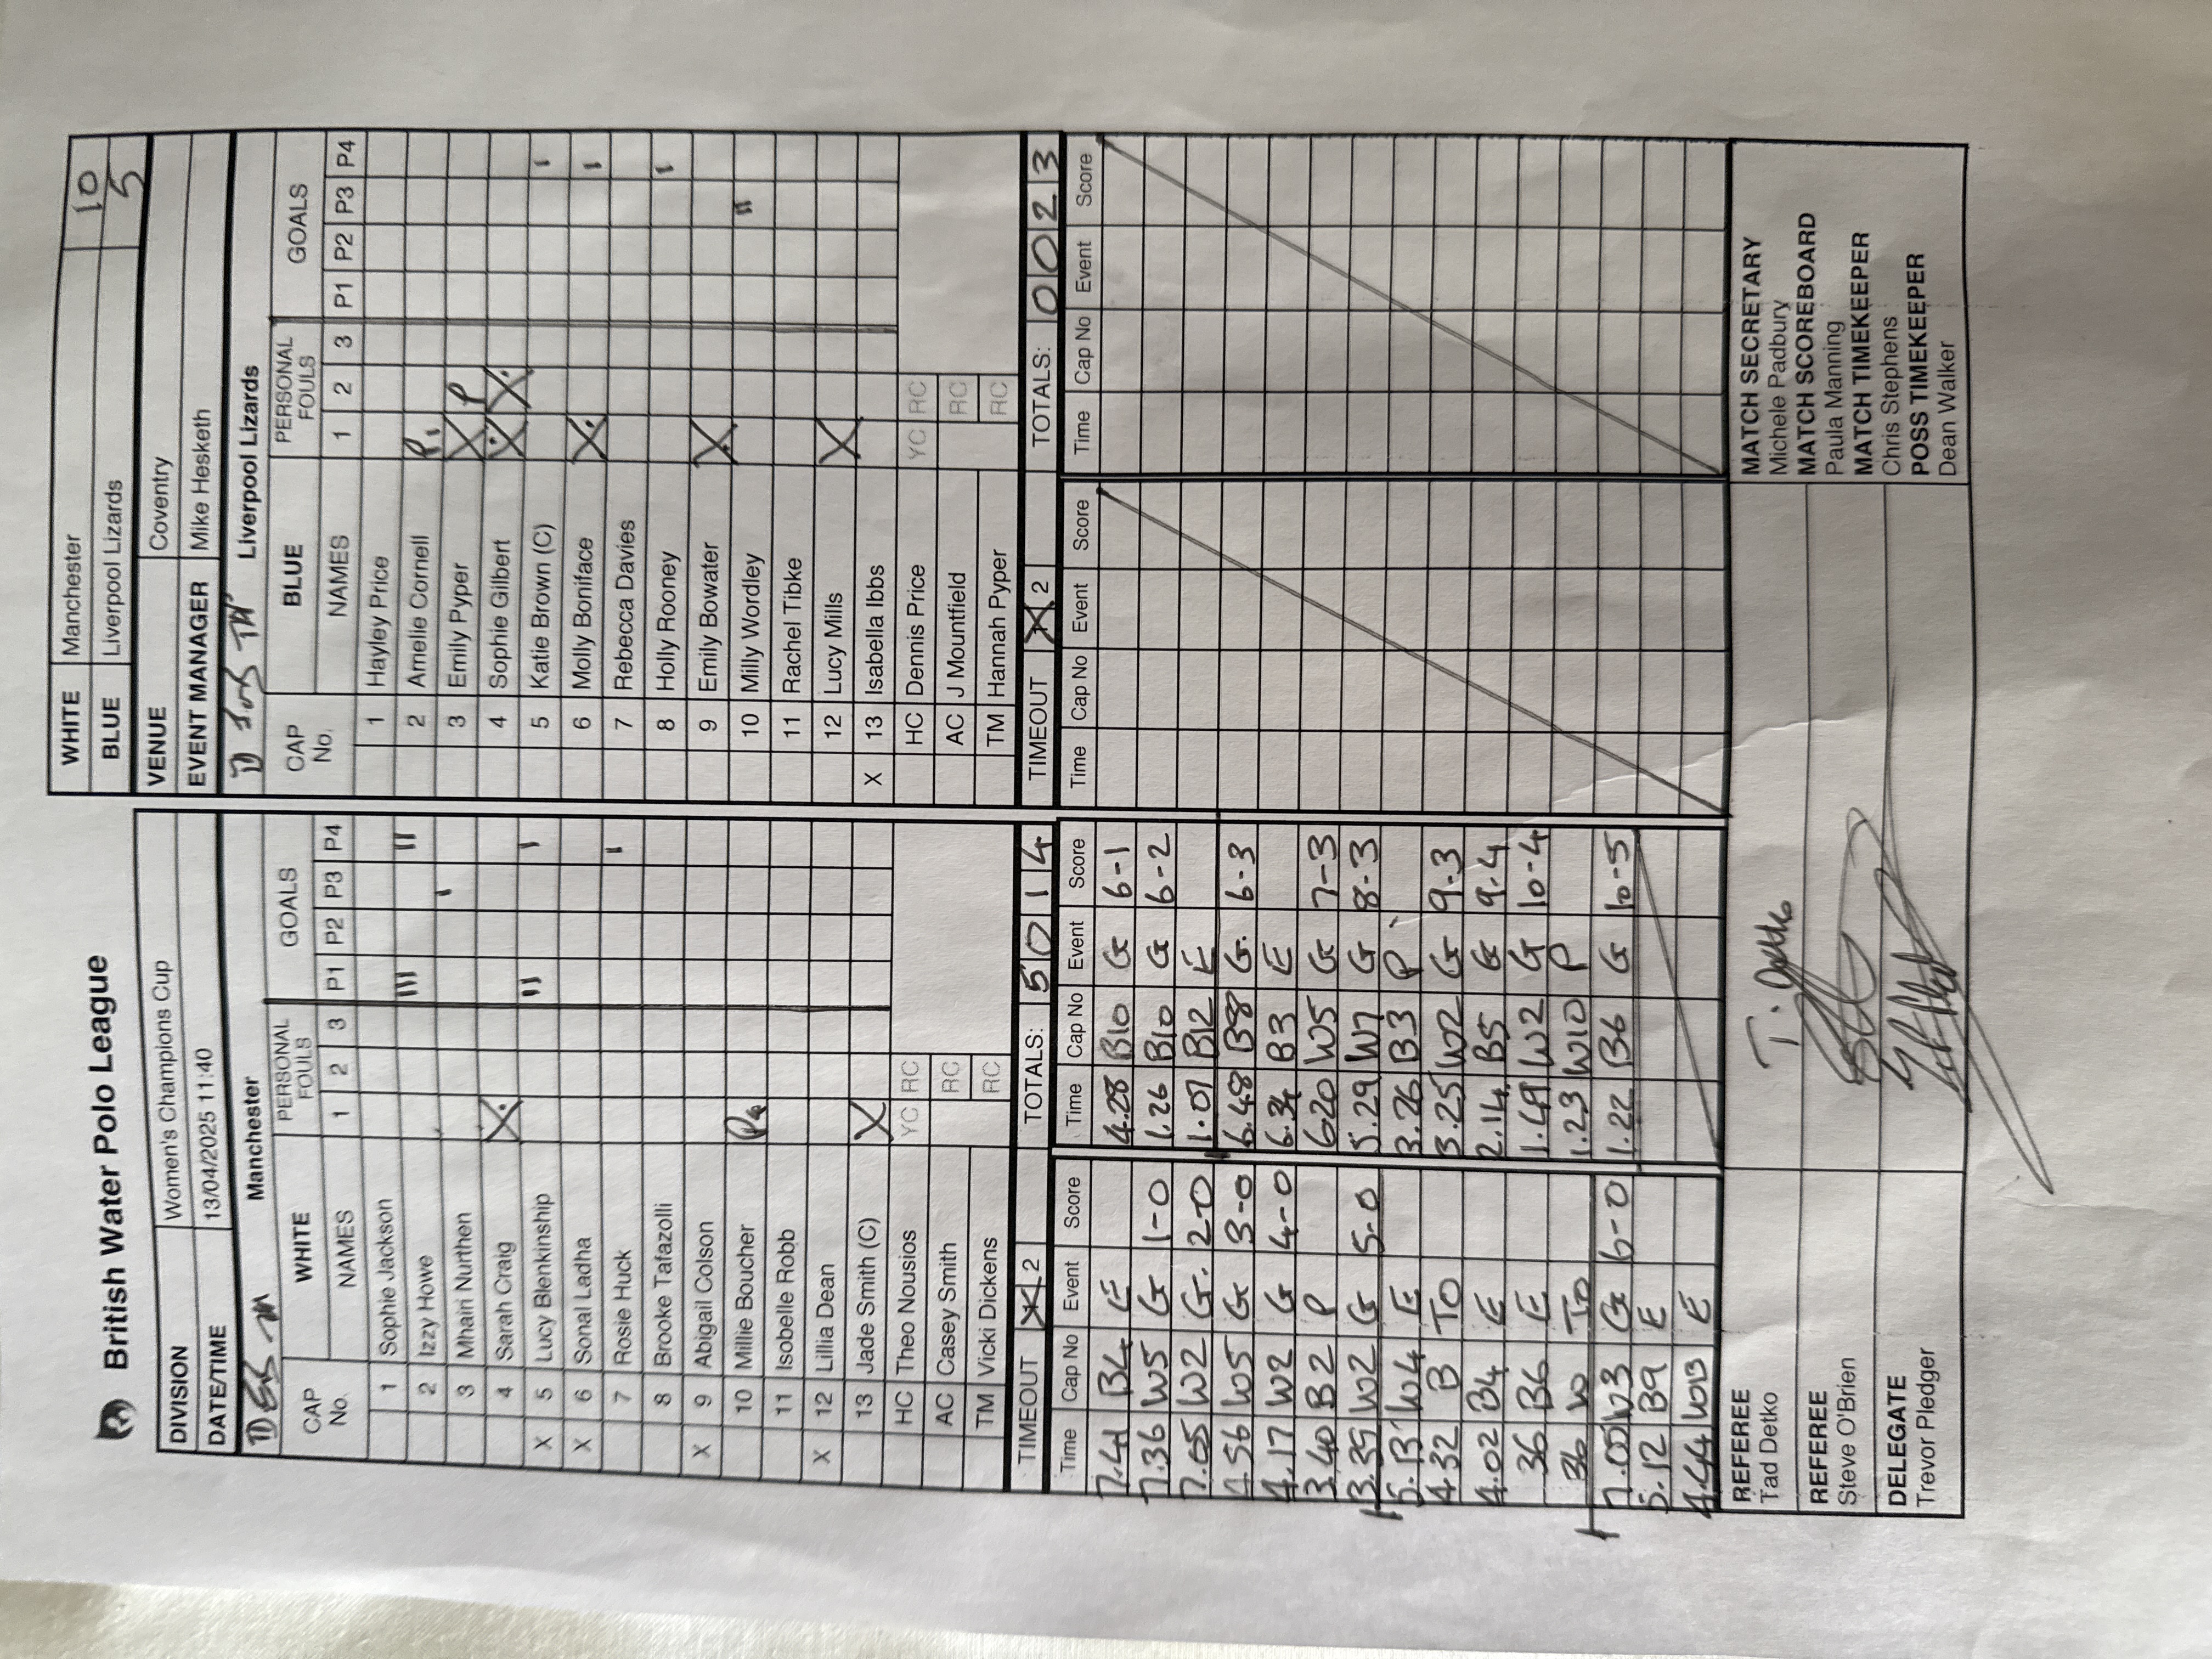 British Water Polo League
DIVISION Women's Champions Cup
DATE/TIME 13/04/2025 11:40
WHITE Manchester 10
BLUE Liverpool Lizards 5
VENUE Coventry
EVENT MANAGER Mike Hesketh
Manchester
CAP No. WHITE NAMES PERSONAL FOULS 1 2 3 GOALS P1 P2 P3 P4
1 Sophie Jackson
2 Izzy Howe III II
3 Mhairi Nurthen I
4 Sarah Craig X
X 5 Lucy Blenkinship II I
X 6 Sonal Ladha
7 Rosie Huck I
8 Brooke Tafazolli
X 9 Abigail Colson
10 Millie Boucher P4
11 Isobelle Robb
X 12 Lillia Dean
13 Jade Smith (C) X
HC Theo Nousios YC RC
AC Casey Smith RC
TM Vicki Dickens RC
TIMEOUT 1 2 TOTALS: 5 0 1 4
Liverpool Lizards
CAP No. BLUE NAMES PERSONAL FOULS 1 2 3 GOALS P1 P2 P3 P4
1 Hayley Price
2 Amelie Cornell P1
3 Emily Pyper X P
4 Sophie Gilbert X X
5 Katie Brown (C) I
6 Molly Boniface X I
7 Rebecca Davies
8 Holly Rooney I
9 Emily Bowater X
10 Milly Wordley II
11 Rachel Tibke
12 Lucy Mills X
X 13 Isabella Ibbs
HC Dennis Price YC RC
AC J Mountfield RC
TM Hannah Pyper RC
TIMEOUT 1 2 TOTALS: 0 0 2 3
Time Cap No Event Score
7.41 B4 E
7.36 W5 G 1-0
7.05 W2 G. 2-0
4.56 W5 G 3-0
4.17 W2 G 4-0
3.40 B2 P
3.39 W2 G 5-0
5.13 W4 E
4.32 B TO
4.02 B4 E
36 B6 E
36 W TO
7.00 W3 G 6-0
5.12 B9 E
4.44 W13 E
Time Cap No Event Score
4.28 B10 G 6-1
1.26 B10 G 6-2
1.07 B12 E
6.48 B8 G. 6-3
6.34 B3 E
6.20 W5 G 7-3
5.29 W7 G 8-3
3.26 B3 P
3.25 W2 G 9.3
2.14 B5 G 9.4
1.49 W2 G 10-4
1.23 W10 P
1.22 B6 G 10-5
Time Cap No Event Score
Time Cap No Event Score
REFEREE
Tad Detko
T. Detko
REFEREE
Steve O'Brien
DELEGATE
Trevor Pledger
MATCH SECRETARY
Michele Padbury
MATCH SCOREBOARD
Paula Manning
MATCH TIMEKEEPER
Chris Stephens
POSS TIMEKEEPER
Dean Walker